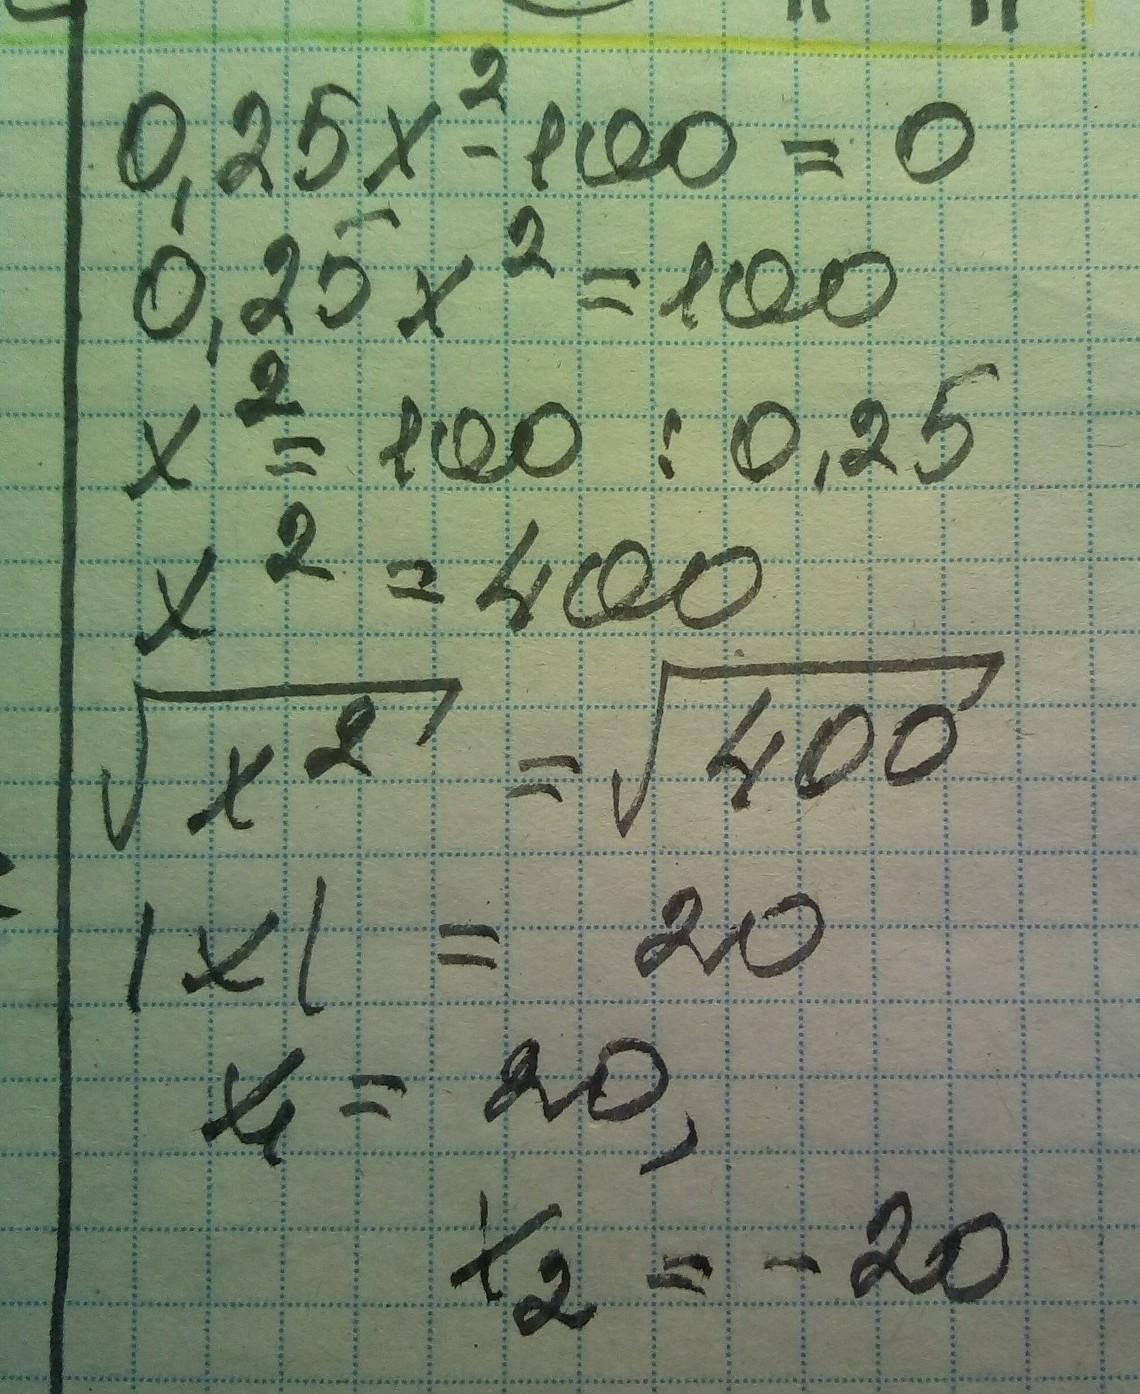 0,25x² - 100 = 0
0,25x² = 100
x² = 100 : 0,25
x² = 400
√x² = √400
|x| = 20
x₁ = 20,
x₂ = -20